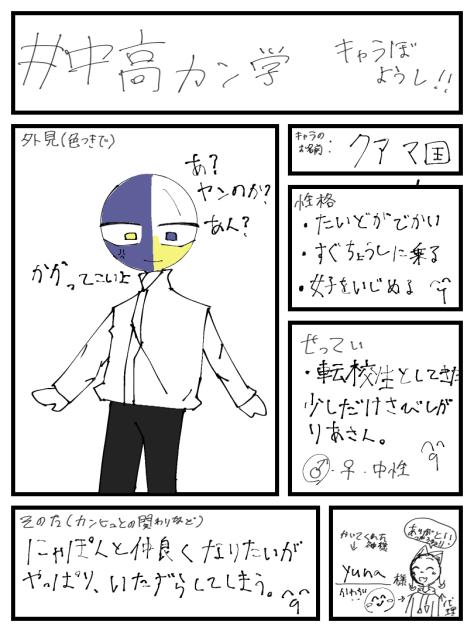 #中高カン学
キャラぼ
ようし!!
外見(色つきで)
あ?
ヤンのか?
あん?
かかってこいよ
キャラの
お名前:
クアマ国
性格
・たいどがでかい
・すぐちょうしに乗る
・女子をいじめる
ぜってい
・転校生としてきた
少しだけさびしが
りあさん。
♂・♀・中性
その他(カンヒュとの関わりなど)
にゃぽんと仲良くなりたいが
やっぱり、いたずらしてしまう。
かいてくれた
神様
↓
yuna様
ありがとう
代理